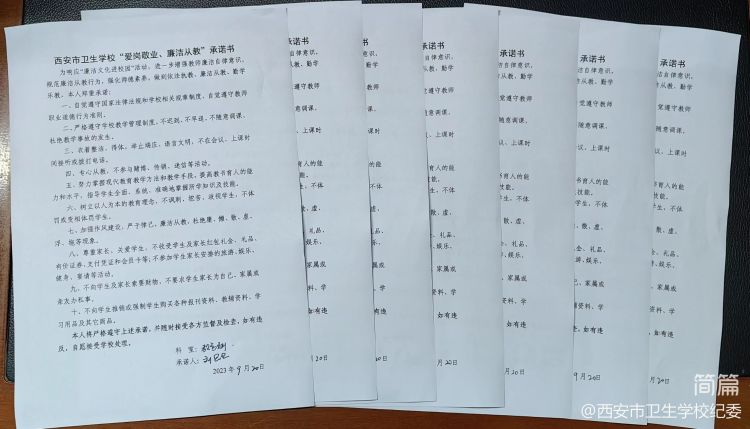 西安市卫生学校“爱岗敬业、廉洁从教”承诺书
为响应“廉洁文化进校园”活动，进一步增强教师廉洁自律意识，
规范廉洁从教行为，强化师德素养，做到依法执教、廉洁从教、勤学
乐教，本人郑重承诺：
一、自觉遵守国家法律法规和学校相关规章制度，自觉遵守教师
职业道德行为准则。
二、严格遵守学校教学管理制度，不迟到、不早退、不随意调课，
杜绝教学事故的发生。
三、衣着整洁、得体，举止端庄、语言文明，不在会议、上课时
间接听或拨打电话。
四、专心从教，不参与赌博、传销、迷信等活动。
五、努力掌握现代教育教学方法和教学手段，提高教书育人的能
力和水平，指导学生全面、系统、准确地掌握所学知识及技能。
六、树立以人为本的教育理念，不讽刺、挖苦、歧视学生，不体
罚或变相体罚学生。
七、加强作风建设，严于律己，廉洁从教，杜绝庸、懒、散、虚、
浮、拖等现象。
八、尊重家长、关爱学生，不收受学生及家长红包礼金、礼品、
有价证券、支付凭证和会员卡等；不参加学生家长安排的旅游、娱乐、
健身、宴请等活动。
九、不向学生及家长索要财物，不要求学生家长为自己、家属或
亲友办私事。
十、不向学生推销或强制学生购买各种报刊资料、教辅资料、学
习用品及其它商品。
本人将严格遵守上述承诺，并随时接受各方监督及检查，如有违
反，自愿接受学校处理。
科 室：
承诺人：
2023年9月20日
简篇
@西安市卫生学校纪委